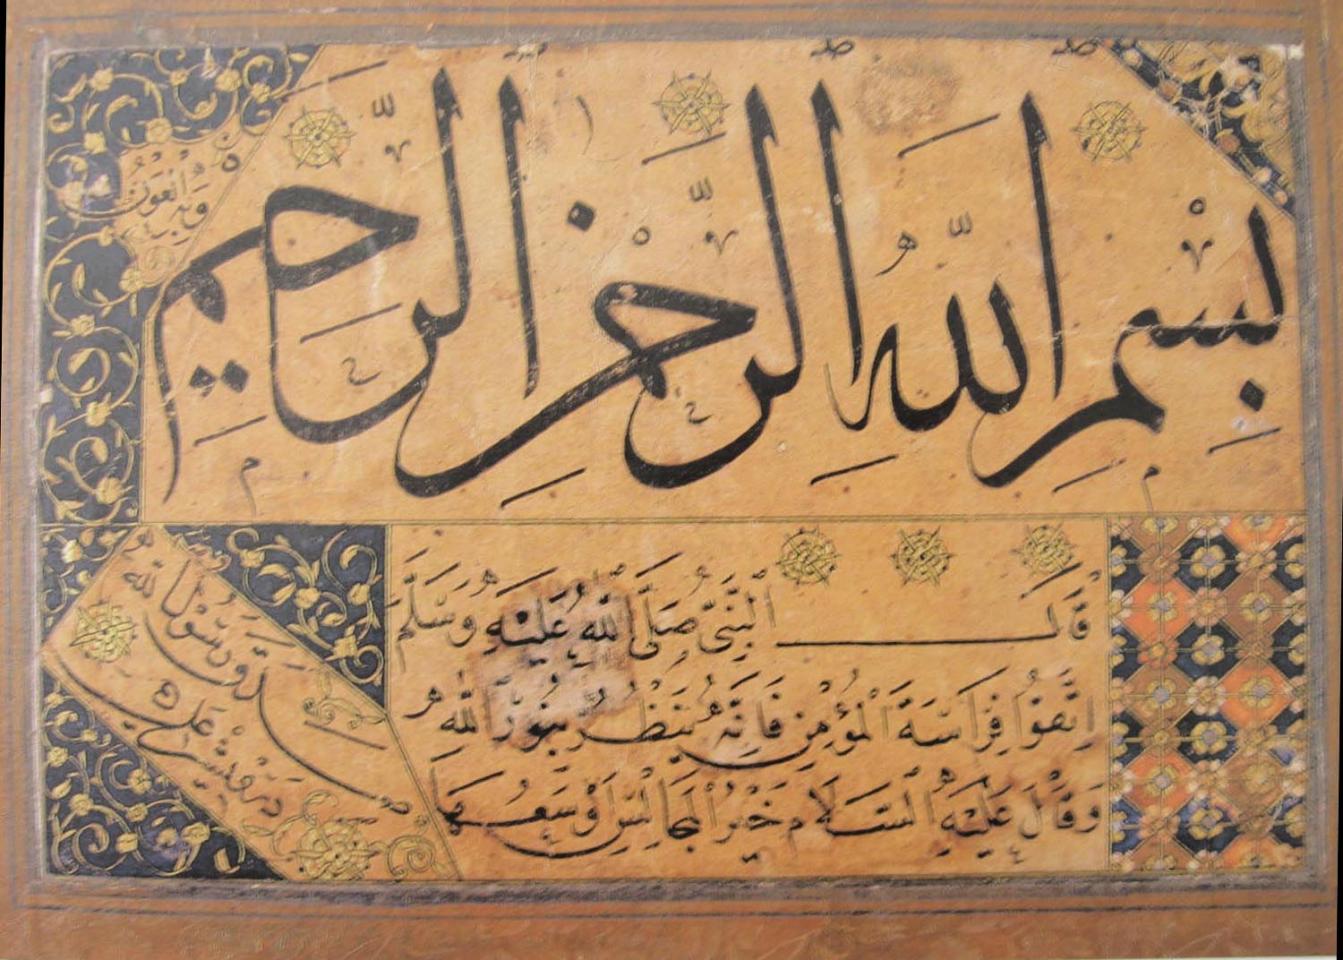 بِسْمِ اللهِ الرَّحْمٰنِ الرَّحِيمِ
وَبِهِ الْعَوْن
قَالَ النَّبِيُّ صَلَّى اللهُ عَلَيْهِ وَسَلَّمَ
اتَّقُوا فِرَاسَةَ الْمُؤْمِنِ فَاِنَّهُ يَنْظُرُ بِنُورِ اللهِ
وَقَالَ عَلَيْهِ السَّلَام خَيْرُ الْمَجَالِسِ اَوْسَعُهَا
صَدَقَ رَسُولُ الله
دَرْوِيش عَلِي